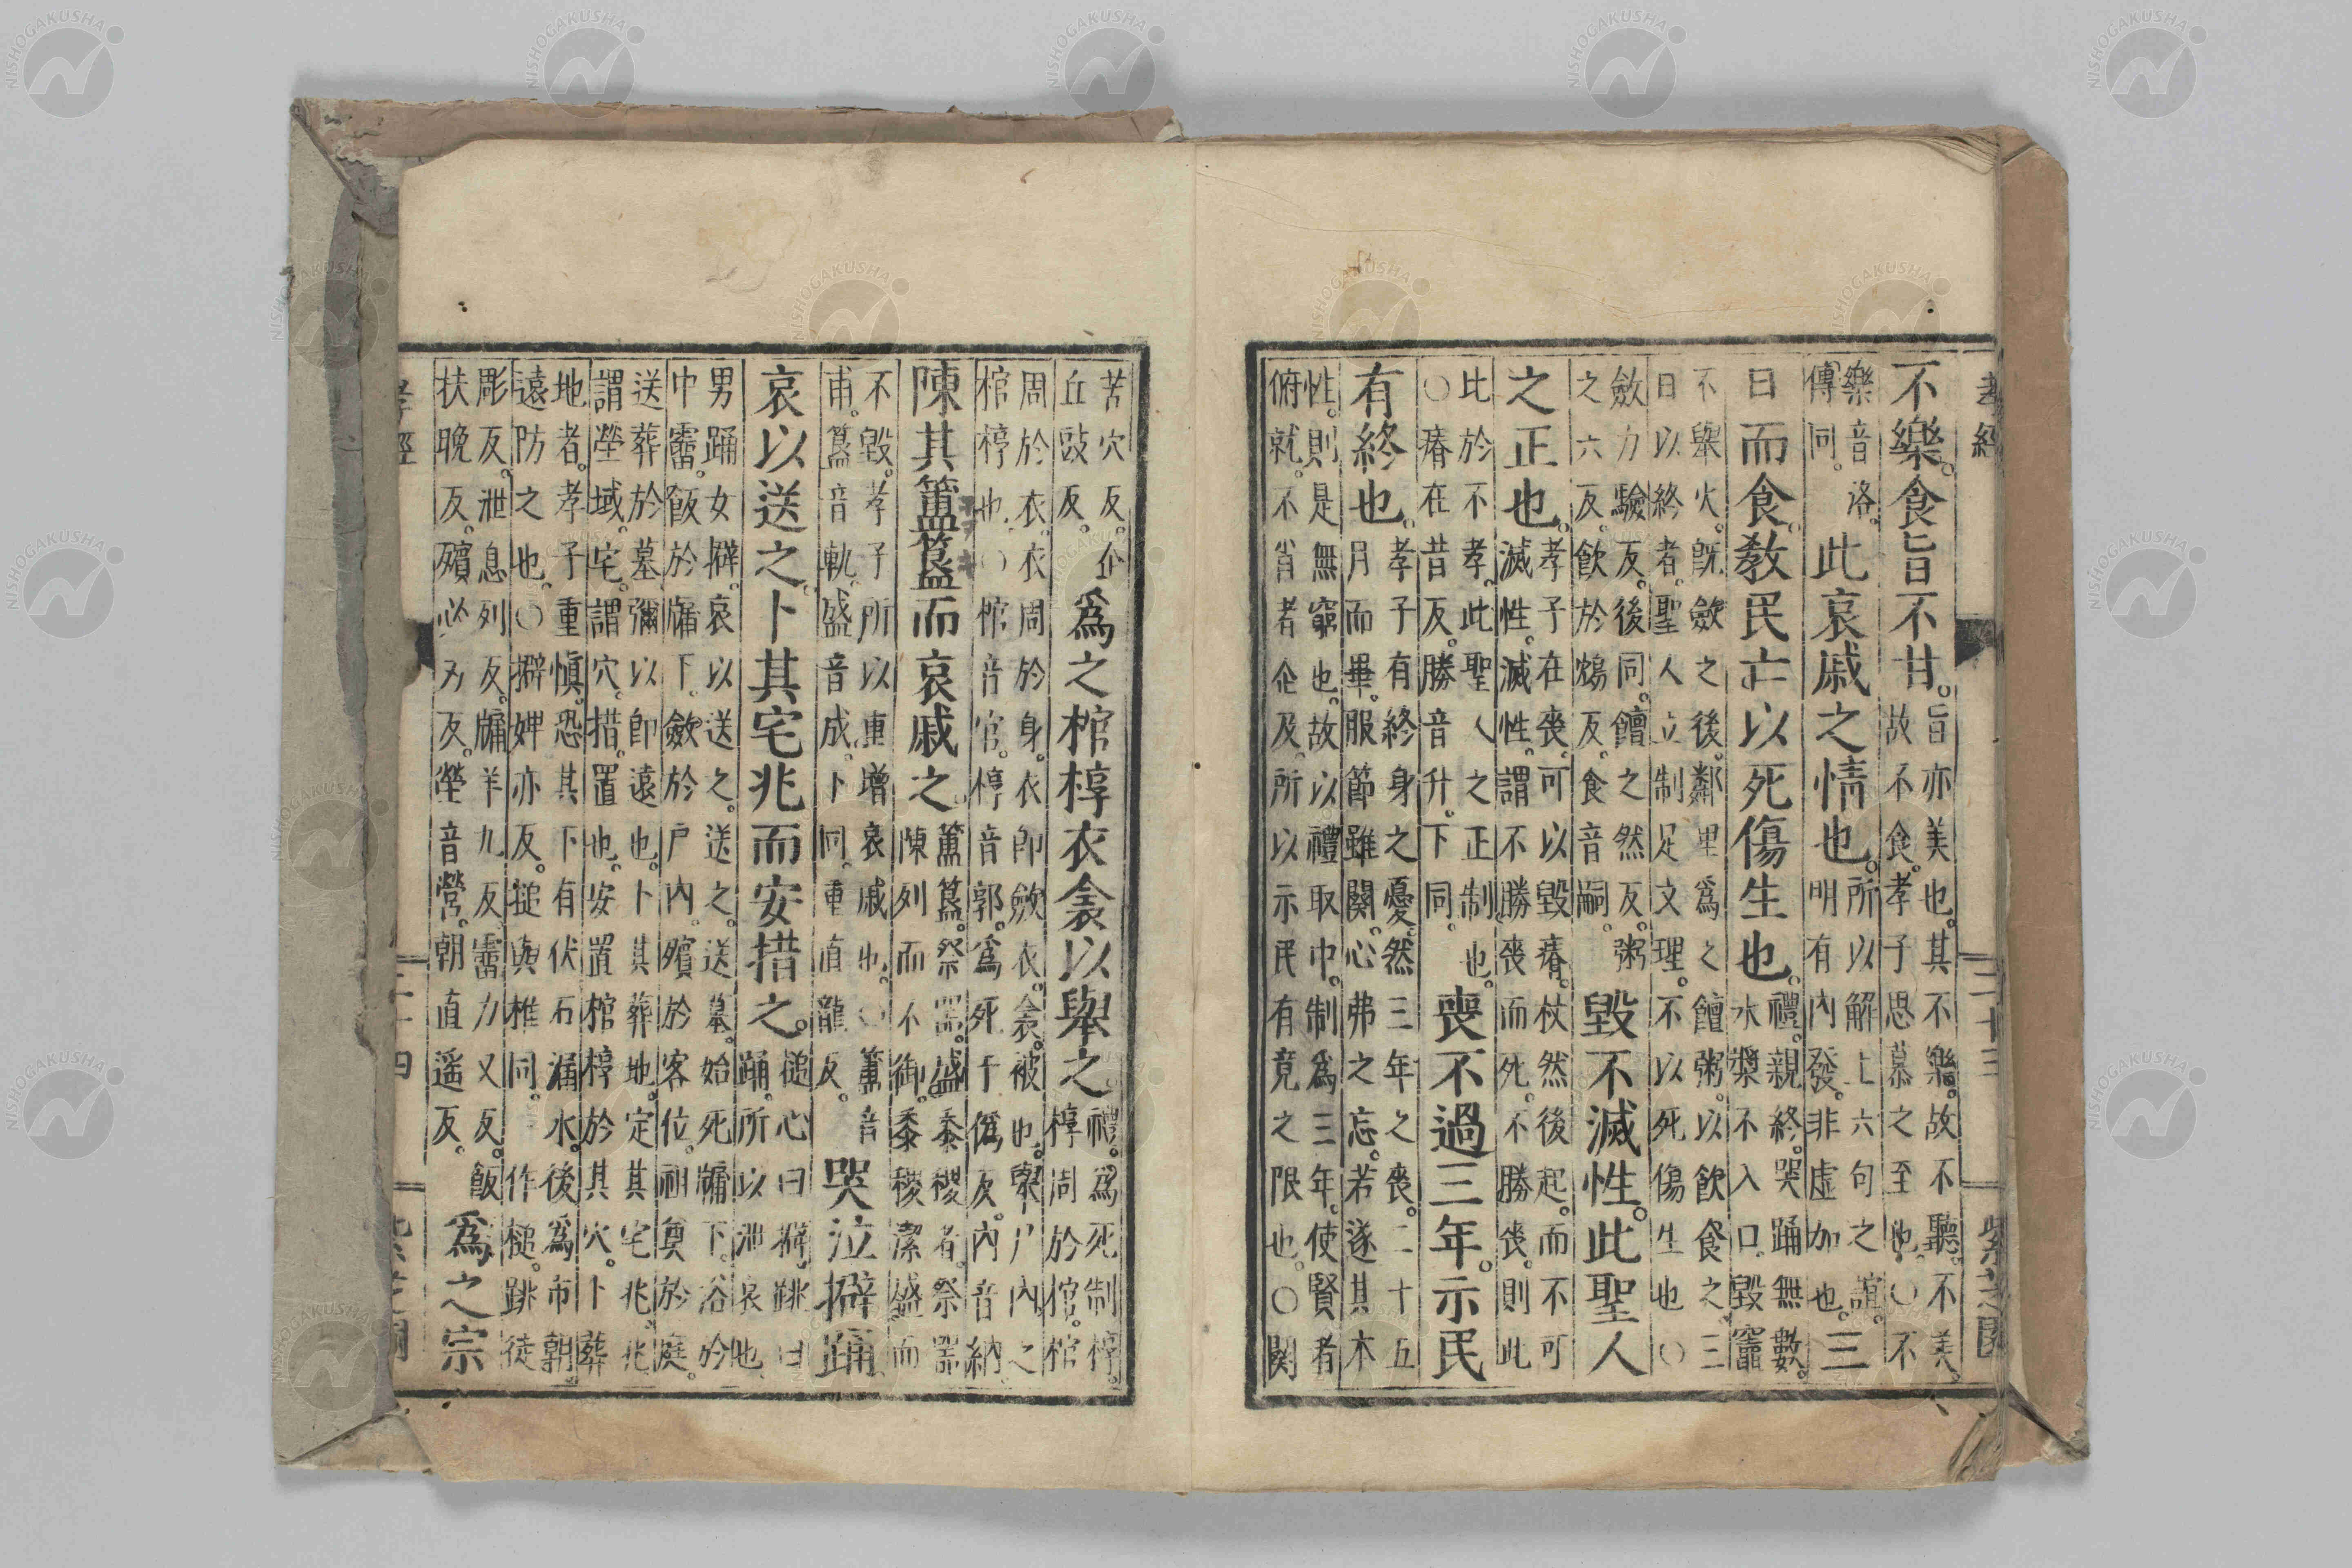 孝經　三十三　紫芝園
不樂。食旨不甘。
旨亦美也。其不樂。故不聽。不美。
故不食。孝子思慕之至也。○不
樂音洛。
傳同。
此哀戚之情也。
所以解上六句之誼。
明有內發。非虛加也。
三
日而食。敎民亡以死傷生也。
禮。親終。哭踊無數。
水漿不入口。毀竈
不舉火。旣斂之後。鄰里爲之饘粥。以飮食之。三
日以終者。聖人立制足文理。不以死傷生也○
斂力驗反。後同。饘之然反。粥
之六反。飮於鴆反。食音嗣。
毀不滅性。此聖人
之正也。
孝子在喪。可以毀瘠。杖然後起。而不可
滅性。滅性。謂不勝喪而死。不勝喪。則此
比於不孝。此聖人之正制也。
○瘠在昔反。勝音升。下同。
喪不過三年。示民
有終也。
孝子有終身之憂。然三年之喪。二十五
月而畢。服節雖闋。心弗之忘。若遂其本
性。則是無窮也。故以禮取中。制爲三年。使賢者
俯就。不肖者企及。所以示民有竟之限也。○闋
苦穴反。企
丘豉反。
爲之棺椁衣衾以舉之。
禮。爲死制椁。
椁周於棺。棺
周於衣。衣周於身。衣卽斂衣。衾。被也。舉尸內之
棺椁也。○棺音官。椁音郭。爲死于僞反。內音納
陳其簠簋而哀戚之。
簠簋。祭器。盛黍稷者。祭器
陳列而不御。黍稷潔盛而
不毀。孝子所以重增哀戚也。○簠音
甫。簋音軌。盛音成。下同。重直龍反。
哭泣擗踊
哀以送之。卜其宅兆而安措之。
搥心曰擗。跳曰
踊。所以泄哀也。
男踊女擗。哀以送之。送之。送墓。始死牖下。浴於
中霤。飯於牖下。斂於戶內。殯於客位。祖奠於庭。
送葬於墓。彌以卽遠也。卜其葬地。定其宅兆。兆。
謂塋域。宅。謂穴。措。置也。安置棺椁於其穴。卜葬
地者。孝子重愼。恐其下有伏石漏水。後爲市朝。
遠防之也。○擗婢亦反。搥與椎同。作槌。跳徒
彫反。泄息列反。牖羊九反。霤力又反。飯
扶晚反。殯必刃反。塋音營。朝直遥反。
爲之宗
孝經　二十四　紫芝園